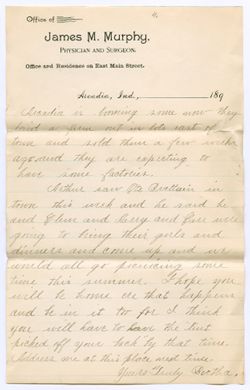 Office of
James M. Murphy,
PHYSICIAN AND SURGEON.
Office and Residence on East Main Street.
Arcadia, Ind., 189
Arcadia is booming some now they
laid a farm out in lots east of
town and sold them a few weeks
ago and they are expecting to
have some factories.
Arthur saw in
town this week and he said he
and Glen and and were
going to bring their girls and
dinners and come up and we
would all go picnicing some
time this summer. I hope you
will be home ere that happens
and be in it too for I think
you will have to have the
picked off your back by that time.
Address me at this place next time.
Yours Truly Bertha.